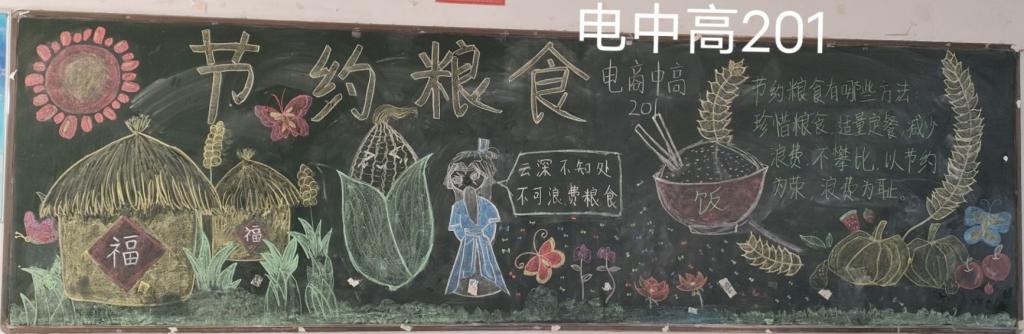 电中高201
节约粮食
电商中高
201
福
福
云深不知处
不可浪费粮食
饭
节约粮食有哪些方法
珍惜粮食 适量定餐、减少
浪费、不攀比、以节约
为荣 浪费为耻。